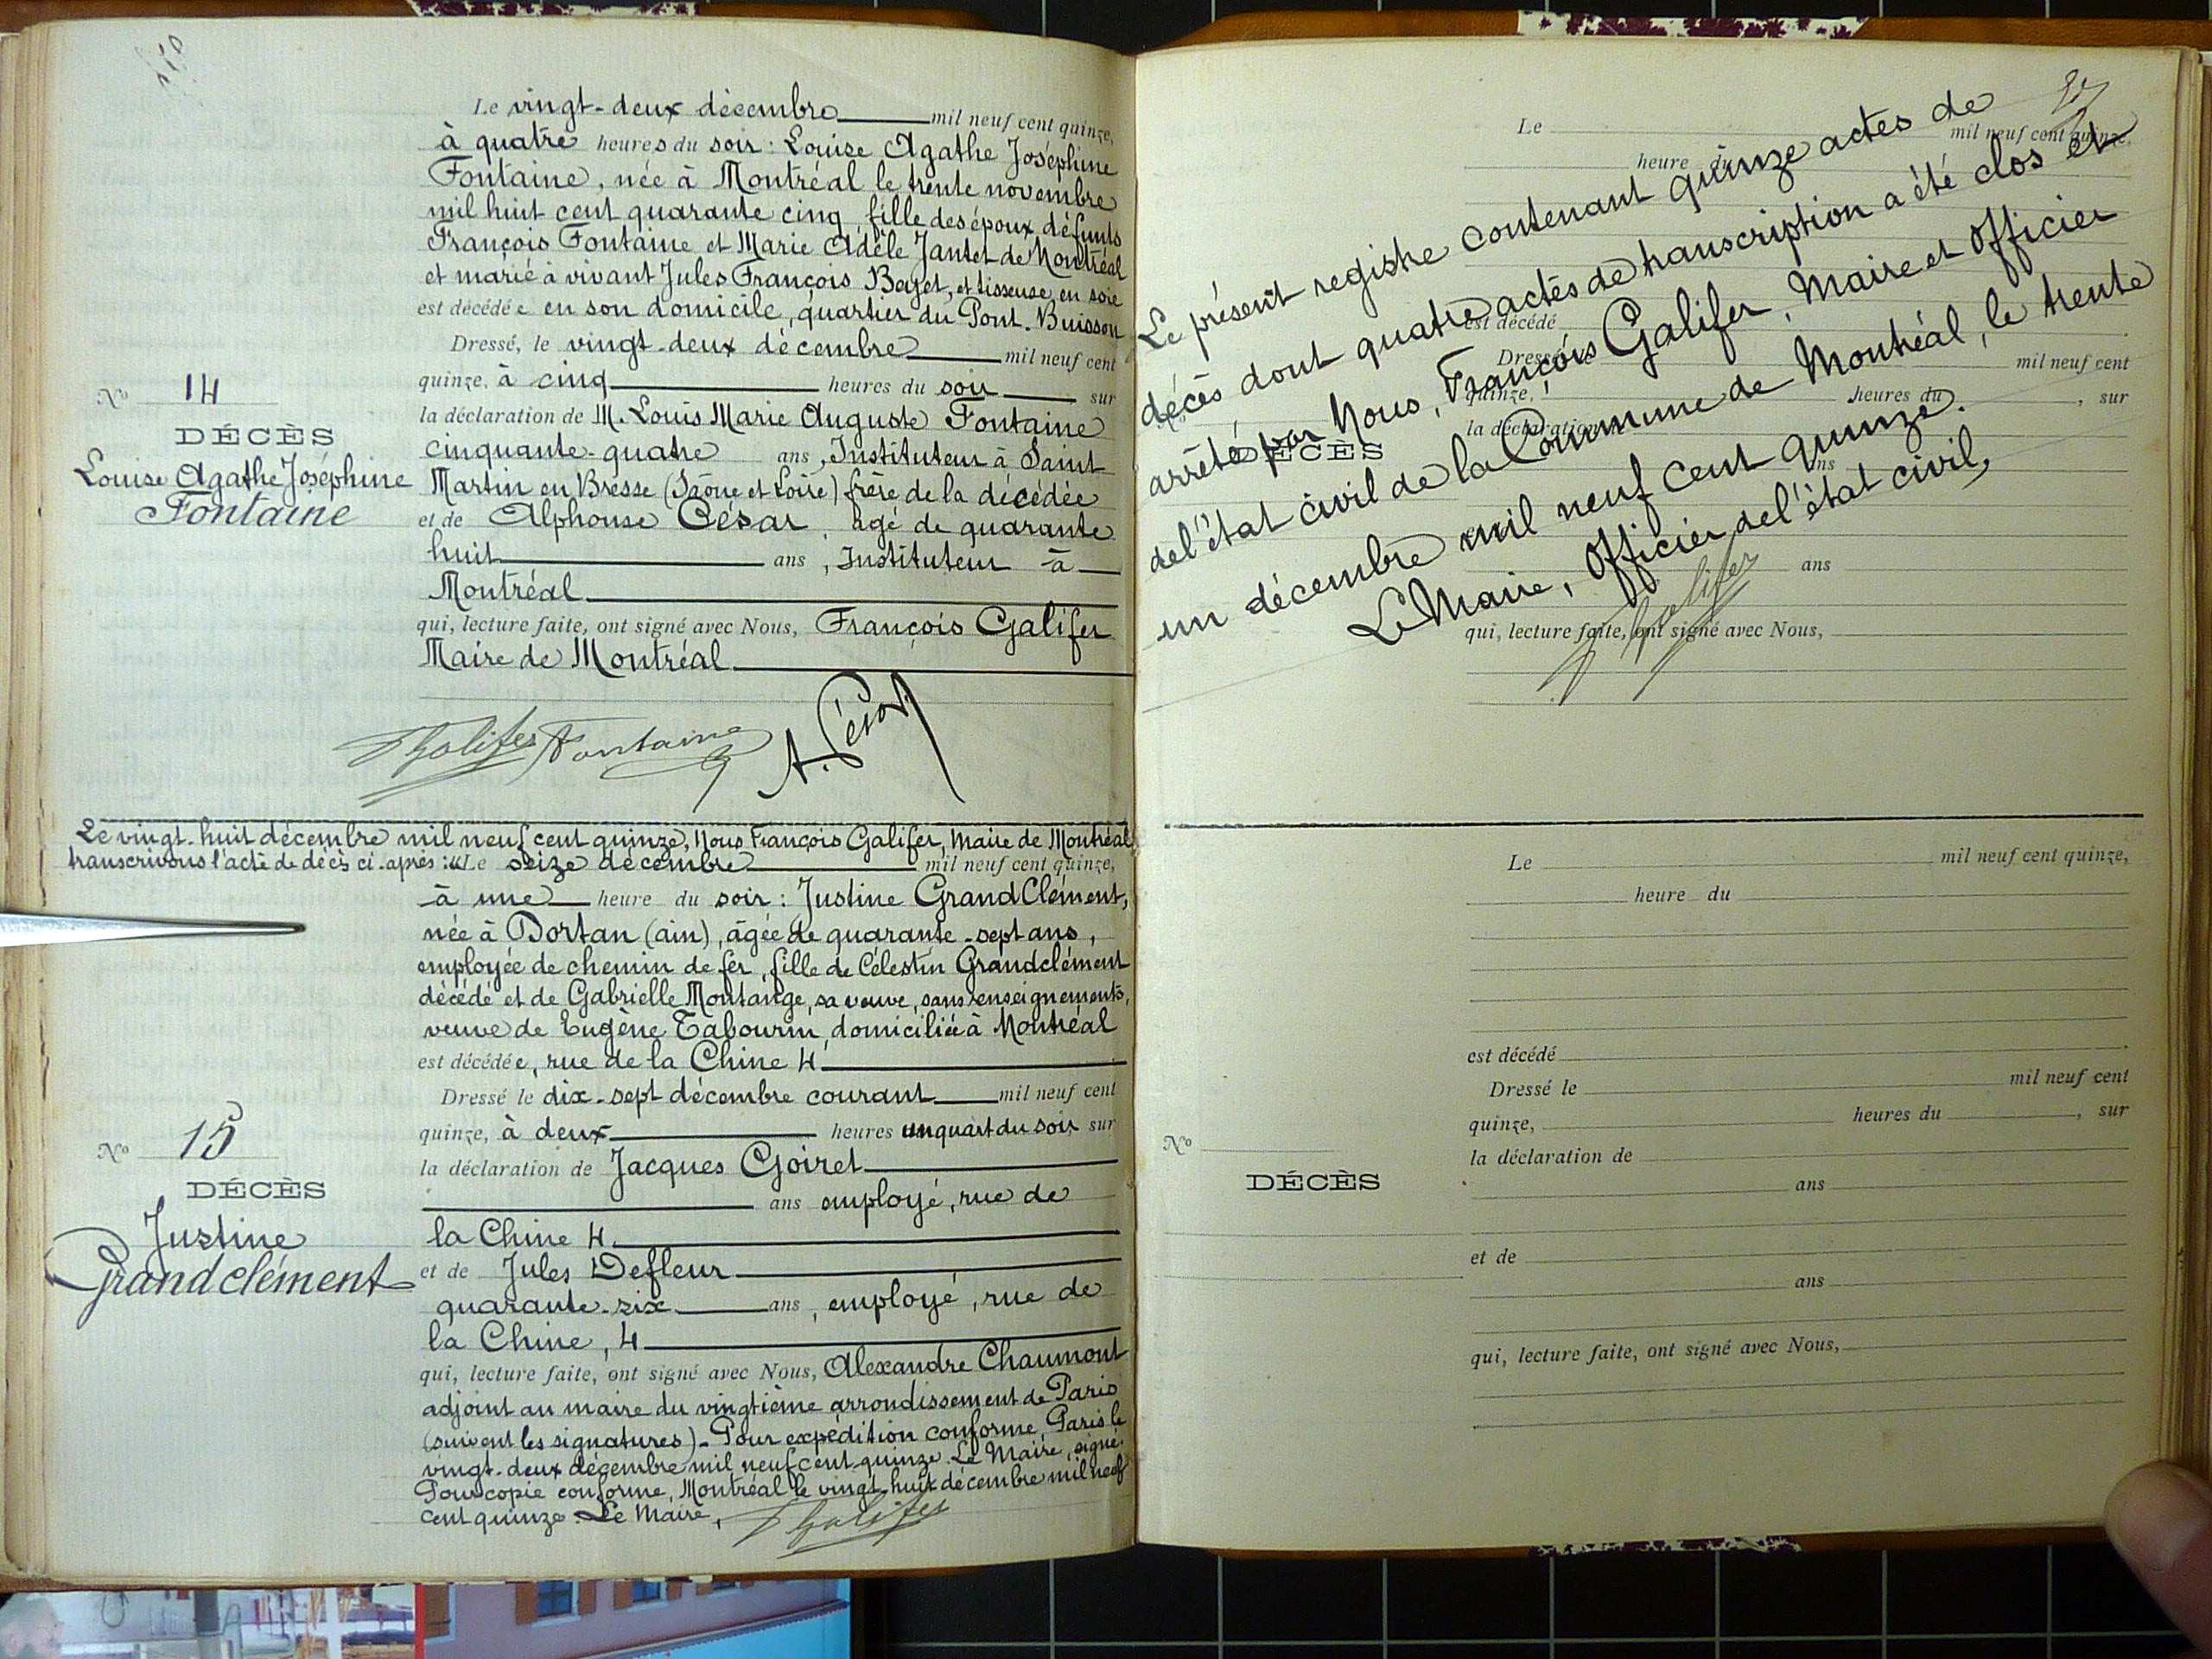 Le vingt-deux décembre mil neuf cent quinze,
à quatre heures du soir : Louise Agathe Joséphine
Fontaine, née à Montréal le trente novembre
mil huit cent quarante cinq, fille des époux défunts
François Fontaine et Marie Adèle Jantet de Montréal
et marié à vivant Jules François Bajet, et tisseuse en soie
est décédée en son domicile, quartier du Pont-Buisson
Dressé, le vingt-deux décembre mil neuf cent
quinze, à cinq heures du soir sur
la déclaration de M. Louis Marie Auguste Fontaine
cinquante-quatre ans, Instituteur à Saint
Martin en Bresse (Saône et Loire) frère de la décédée
et de Alphonse César, âgé de quarante
huit ans, Instituteur à
Montréal
qui, lecture faite, ont signé avec Nous, François Galifer
Maire de Montréal
N° 14
DÉCÈS
Louise Agathe Joséphine
Fontaine
Fontaine
A. César
Le vingt-huit décembre mil neuf cent quinze, Nous François Galifer, Maire de Montréal
transcrivons l'acte de décès ci-après : « Le seize décembre mil neuf cent quinze,
à une heure du soir : Justine GrandClément,
née à Dortan (ain), âgée de quarante-sept ans,
employée de chemin de fer, fille de Célestin Grandclément
décédé et de Gabrielle Montange, sa veuve, sans renseignements,
veuve de Eugène Tabourin, domiciliée à Montréal
est décédée, rue de la Chine 4
Dressé le dix-sept décembre courant mil neuf cent
quinze, à deux heures un quart du soir sur
la déclaration de Jacques Goiret
ans employé, rue de
la Chine 4.
et de Jules Defleur
quarante-six ans, employé, rue de
la Chine, 4
qui, lecture faite, ont signé avec Nous, Alexandre Chaumont
adjoint au maire du vingtième arrondissement de Paris
(suivent les signatures) - Pour expédition conforme, Paris le
vingt-deux décembre mil neuf cent quinze. Le Maire, signé.
Pour copie conforme, Montréal le vingt-huit décembre mil neuf
cent quinze. Le Maire,
N° 15
DÉCÈS
Justine
Grandclément
Le présent registre contenant quinze actes de
décès dont quatre actes de transcription a été clos et
arrêté par Nous, François Galifer, Maire et officier
de l'état civil de la Commune de Montréal, le trente
un décembre mil neuf cent quinze.
Le Maire, Officier de l'état civil,
Le mil neuf cent quinze,
heure du
est décédé
Dressé le mil neuf cent
quinze, heures du , sur
la déclaration de
ans
ans
DÉCÈS
qui, lecture faite, ont signé avec Nous,
Le mil neuf cent quinze,
heure du
est décédé
Dressé le mil neuf cent
quinze, heures du , sur
la déclaration de
ans
et de
ans
qui, lecture faite, ont signé avec Nous,
N°
DÉCÈS